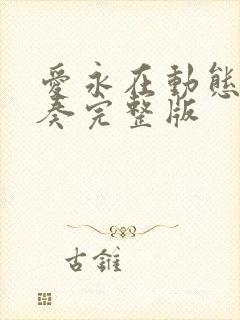 愛永在動態
奏完整版
古錐